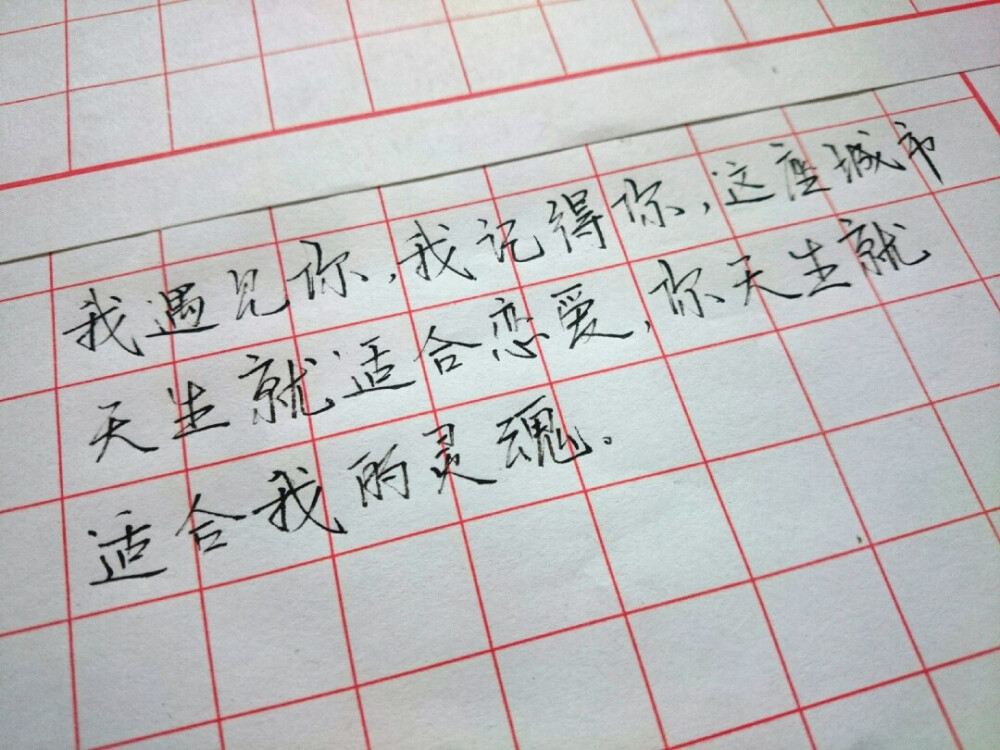 我遇见你,我记得你,这座城市
天生就适合恋爱,你天生就
适合我的灵魂。